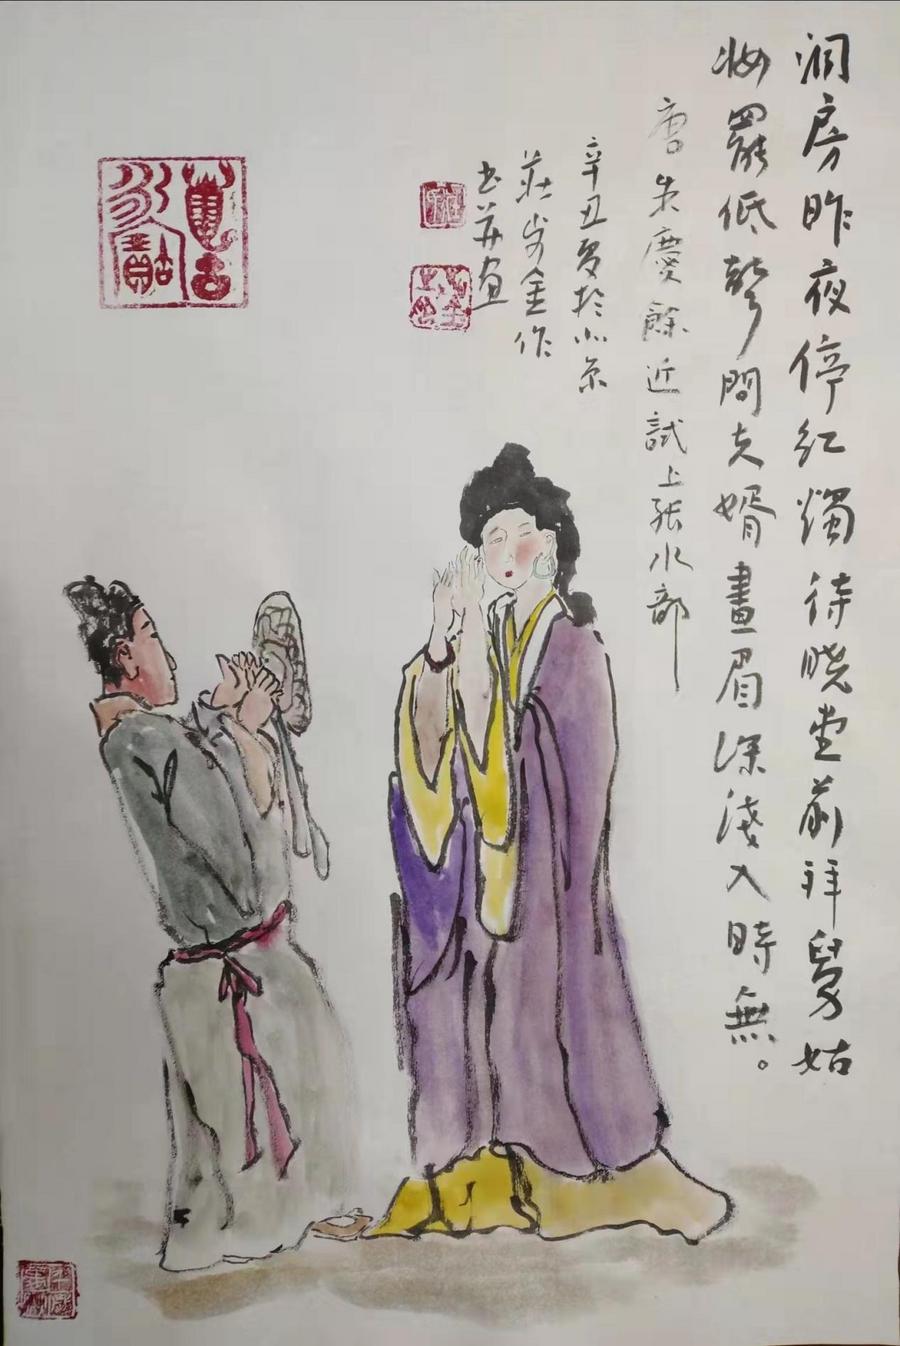 洞房昨夜停红燭待曉堂前拜舅姑
妝罷低聲問夫婿畫眉深淺入時無。
唐朱慶餘近試上張水部
辛丑夏於北京
莊步金作
书并画